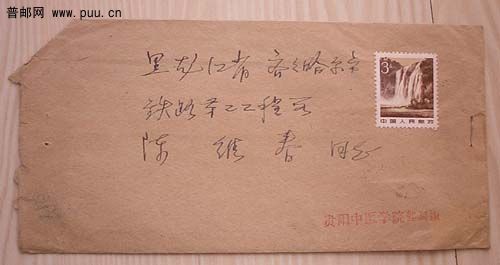 普邮网
www.puu.cn
黑龙江省 齐々哈尔市
铁路第二工程
陈 维 春 同志
3分
中国人民邮政
贵阳中医学院